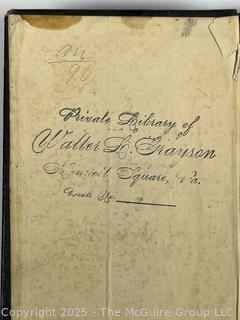 90
Private Library of
Walter L. Grayson
Kennett Square, Pa.
Book No.
Copyright 2025 - The McGuire Group LLC